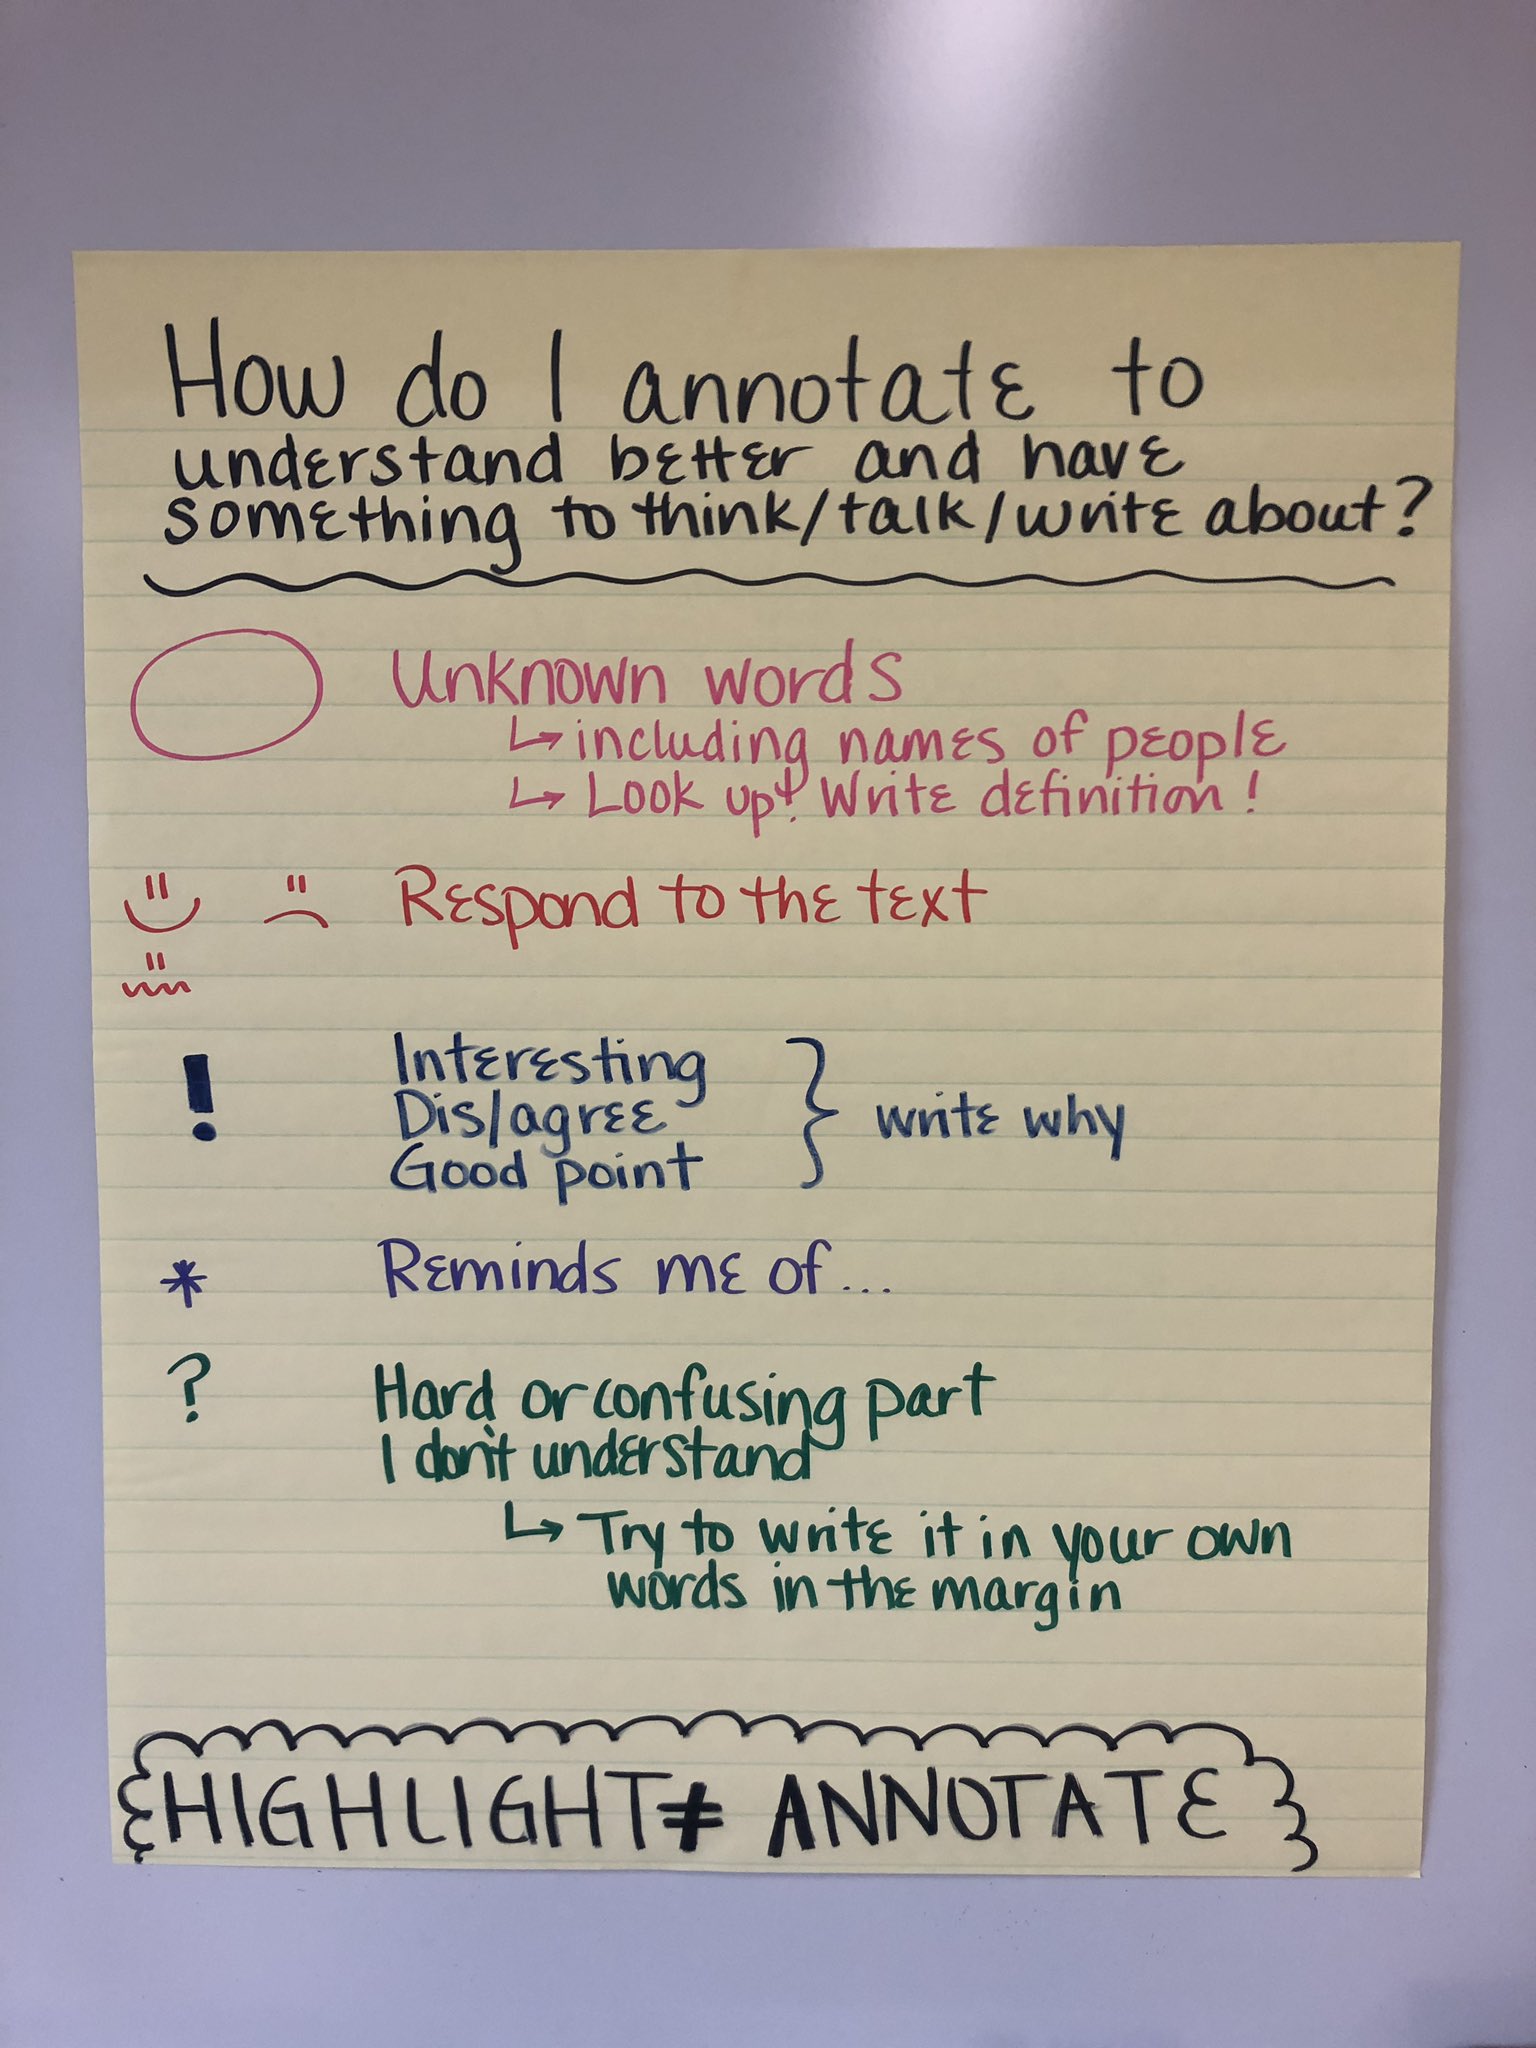 How do I annotate to
understand better and have
something to think/talk/write about?
Unknown words
↳ including names of people
↳ Look up & Write definition!
Respond to the text
! Interesting
Dis/agree
Good point
} write why
* Reminds me of...
? Hard or confusing part
I don't understand
↳ Try to write it in your own
words in the margin
HIGHLIGHT ≠ ANNOTATE